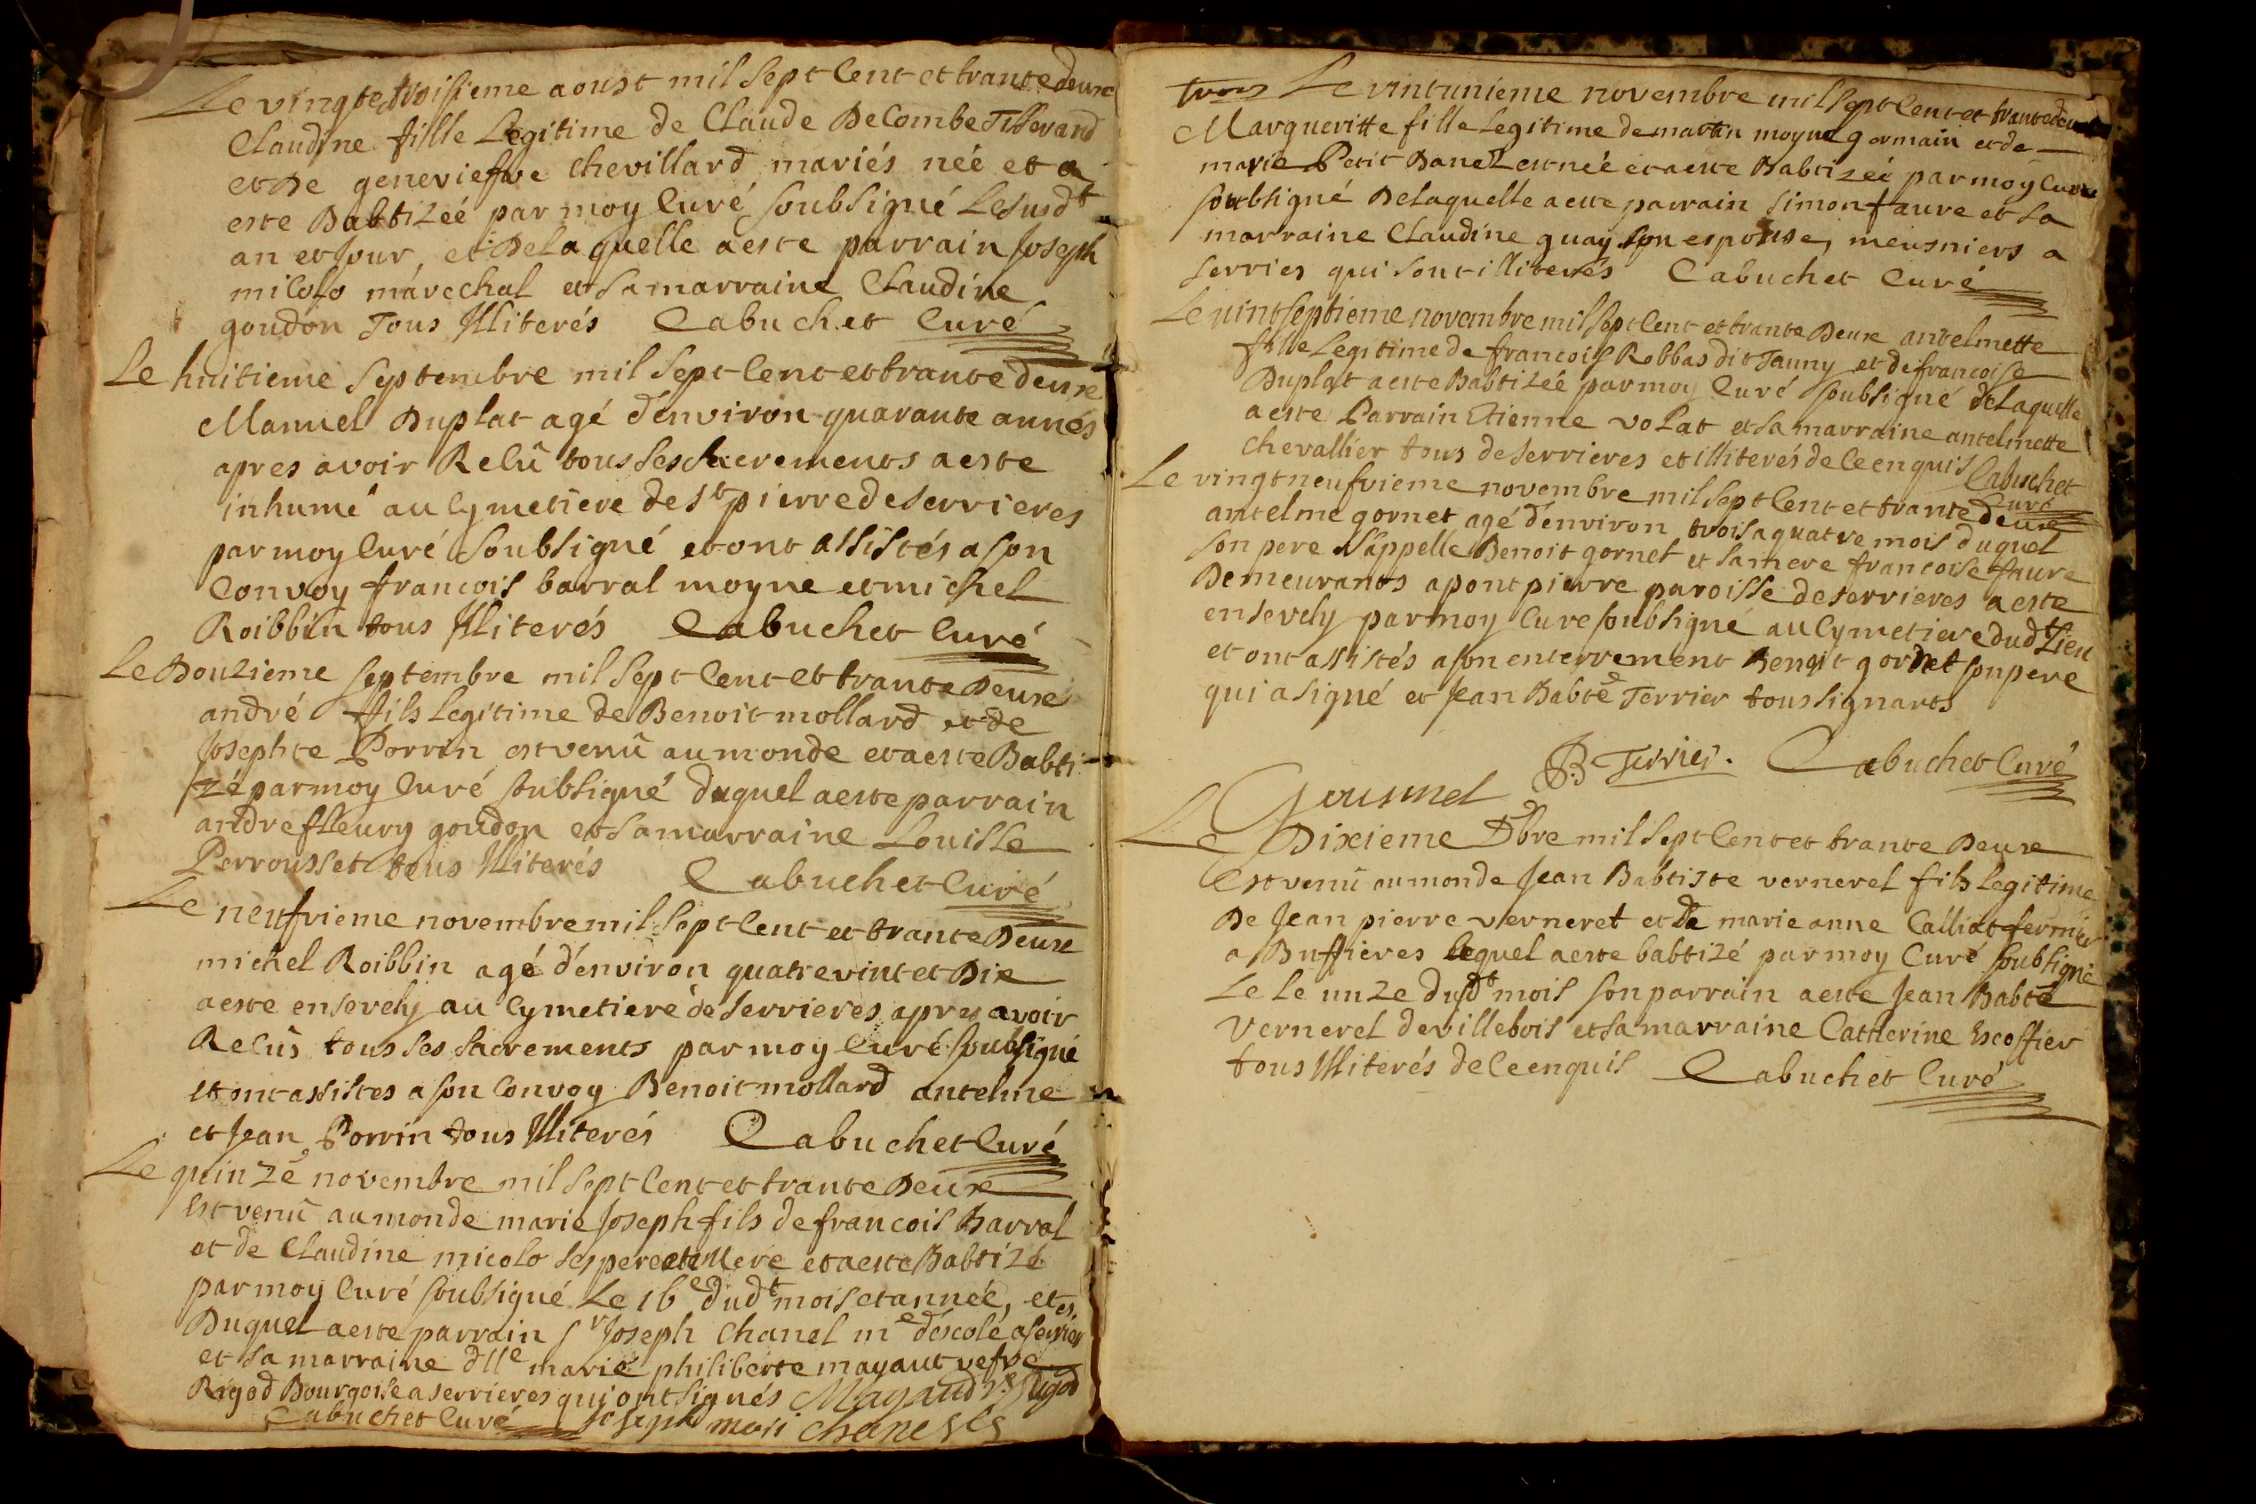 Le vingte troisieme aoust mil sept Cent et trante deuxe
Claudine fille Legitime de Claude DeCombe Tisserand
et De geneviefwe Chevillard mariés née et a
este Babtizeé par moy Curé soubsigné Lesusdt
an et Jour, et Delaquelle a este parrain Joseph
micolo maréchal et sa marraine Claudine
goudon Tous Illiterés Cabuchet Curé
Le huitieme septembre mil sept Cent et trante deuxe
Manuel Duplat agé d'environ quarante annés
apres avoir Reçû tous ses sacrements a este
inhumé au Cymetiere de st pierre de serrieres
par moy Curé soubsigné et ont assistés a son
Convoy francois barral moyne et michel
Roibbin tous Illiterés Cabuchet Curé
Le Douzieme septembre mil sept Cent et trante Deuxe
andré fils legitime de Benoit mollard et de
Josephte Porrin est venû au monde et a este Babti
zé par moy Curé soubsigné duquel a este parrain
andre fleury goudon et sa marraine Louisse
Perrousset tous Illiterés Cabuchet Curé
Le neufvieme novembre mil sept Cent et trante Deuxe
michel Roibbin agé d'environ quatrevint et Dix
a este ensevely au Cymetiere de serrieres apres avoir
Reçûs tous ses sacrements par moy Curé soubsigné
et ont assistes a son Convoy Benoit mollard antelme
et Jean Porrin tous Illiterés Cabuchet Curé
Le quinze novembre mil sept Cent et trante Deuxe
est venû au monde marie Joseph fils de francois Barral
et de Claudine micolo ses pere et Mere et a este Babtizé
par moy Curé soubsigné Le 16e dudt mois et année, et
Duquel a este parrain sr Joseph Chanel me descole a serrieres
et sa marraine dlle marie philiberte mayaut vefve
Rigod Bourgoise a serrieres qui ont signés Mayaud ve Rigod
Cabuchet Curé Joseph mari chanel
trois Le vintunieme novembre mil sept Cent et trante deuxe
Margueritte fille legitime de martin moyne gormain et de
marie Petit Banel est née et a este Babtizeé par moy Curé
soubsigné Delaquelle a este parrain simon faure et sa
marraine Claudine quay son espouse, meusniers a
serries qui sont illiterés Cabuchet Curé
Le vintseptieme novembre mil sept Cent et trante Deuxe antelmette
fille Legitime de francois Robbas dit Tanny et de francoise
Duplat a este Babtizeé par moy Curé soubsigné delaquelle
a este Parrain Etienne volat et sa marraine antelmette
chevallier tous de serrieres et illiterés de Ce enquis Cabuchet
Curé
Le vingtneufvieme novembre mil sept Cent et trante deuxe
antelme gornet agé d'environ trois a quatre mois duquel
son pere s'appelle Benoit gornet et sa mere francoise faure
Demeurants a pontpierre paroisse de serrieres a este
ensevely par moy Cure soubsigné au Cymetiere dudt Lieu
et ont assistés a son enterrement Benoit gornet son pere
qui a signé et Jean Babte Terrier tous signarts
JB Terrier. Cabuchet Curé
Gournel
Le Dixieme Dbre mil sept Cent et trante Deuxe
Est venû au monde Jean Babtiste vernerel fils legitime
De Jean pierre verneret et de marie anne Calliat fermier
a Buffieres lequel a este babtizé par moy Curé soubsigné
Le le unze dusdt mois son parrain a este Jean Babte
Vernerel de villebois et sa marraine Catherine Escoffier
tous Illiterés de Ce enquis Cabuchet Curé